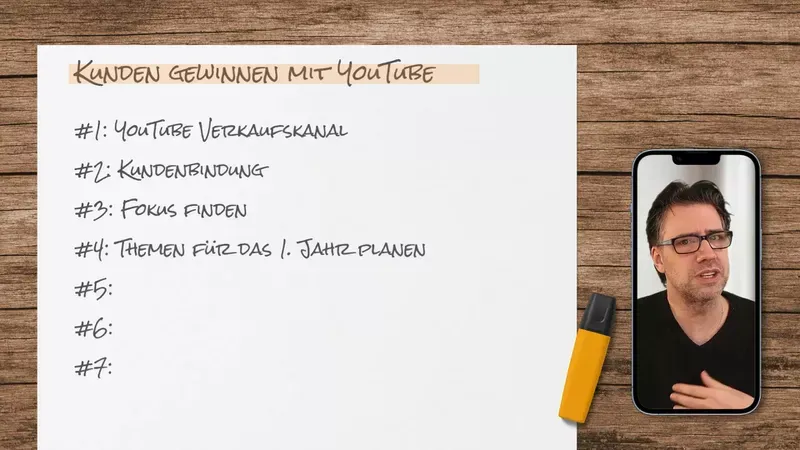 Kunden gewinnen mit YouTube
#1: YouTube Verkaufskanal
#2: Kundenbindung
#3: Fokus finden
#4: Themen für das 1. Jahr planen
#5:
#6:
#7: